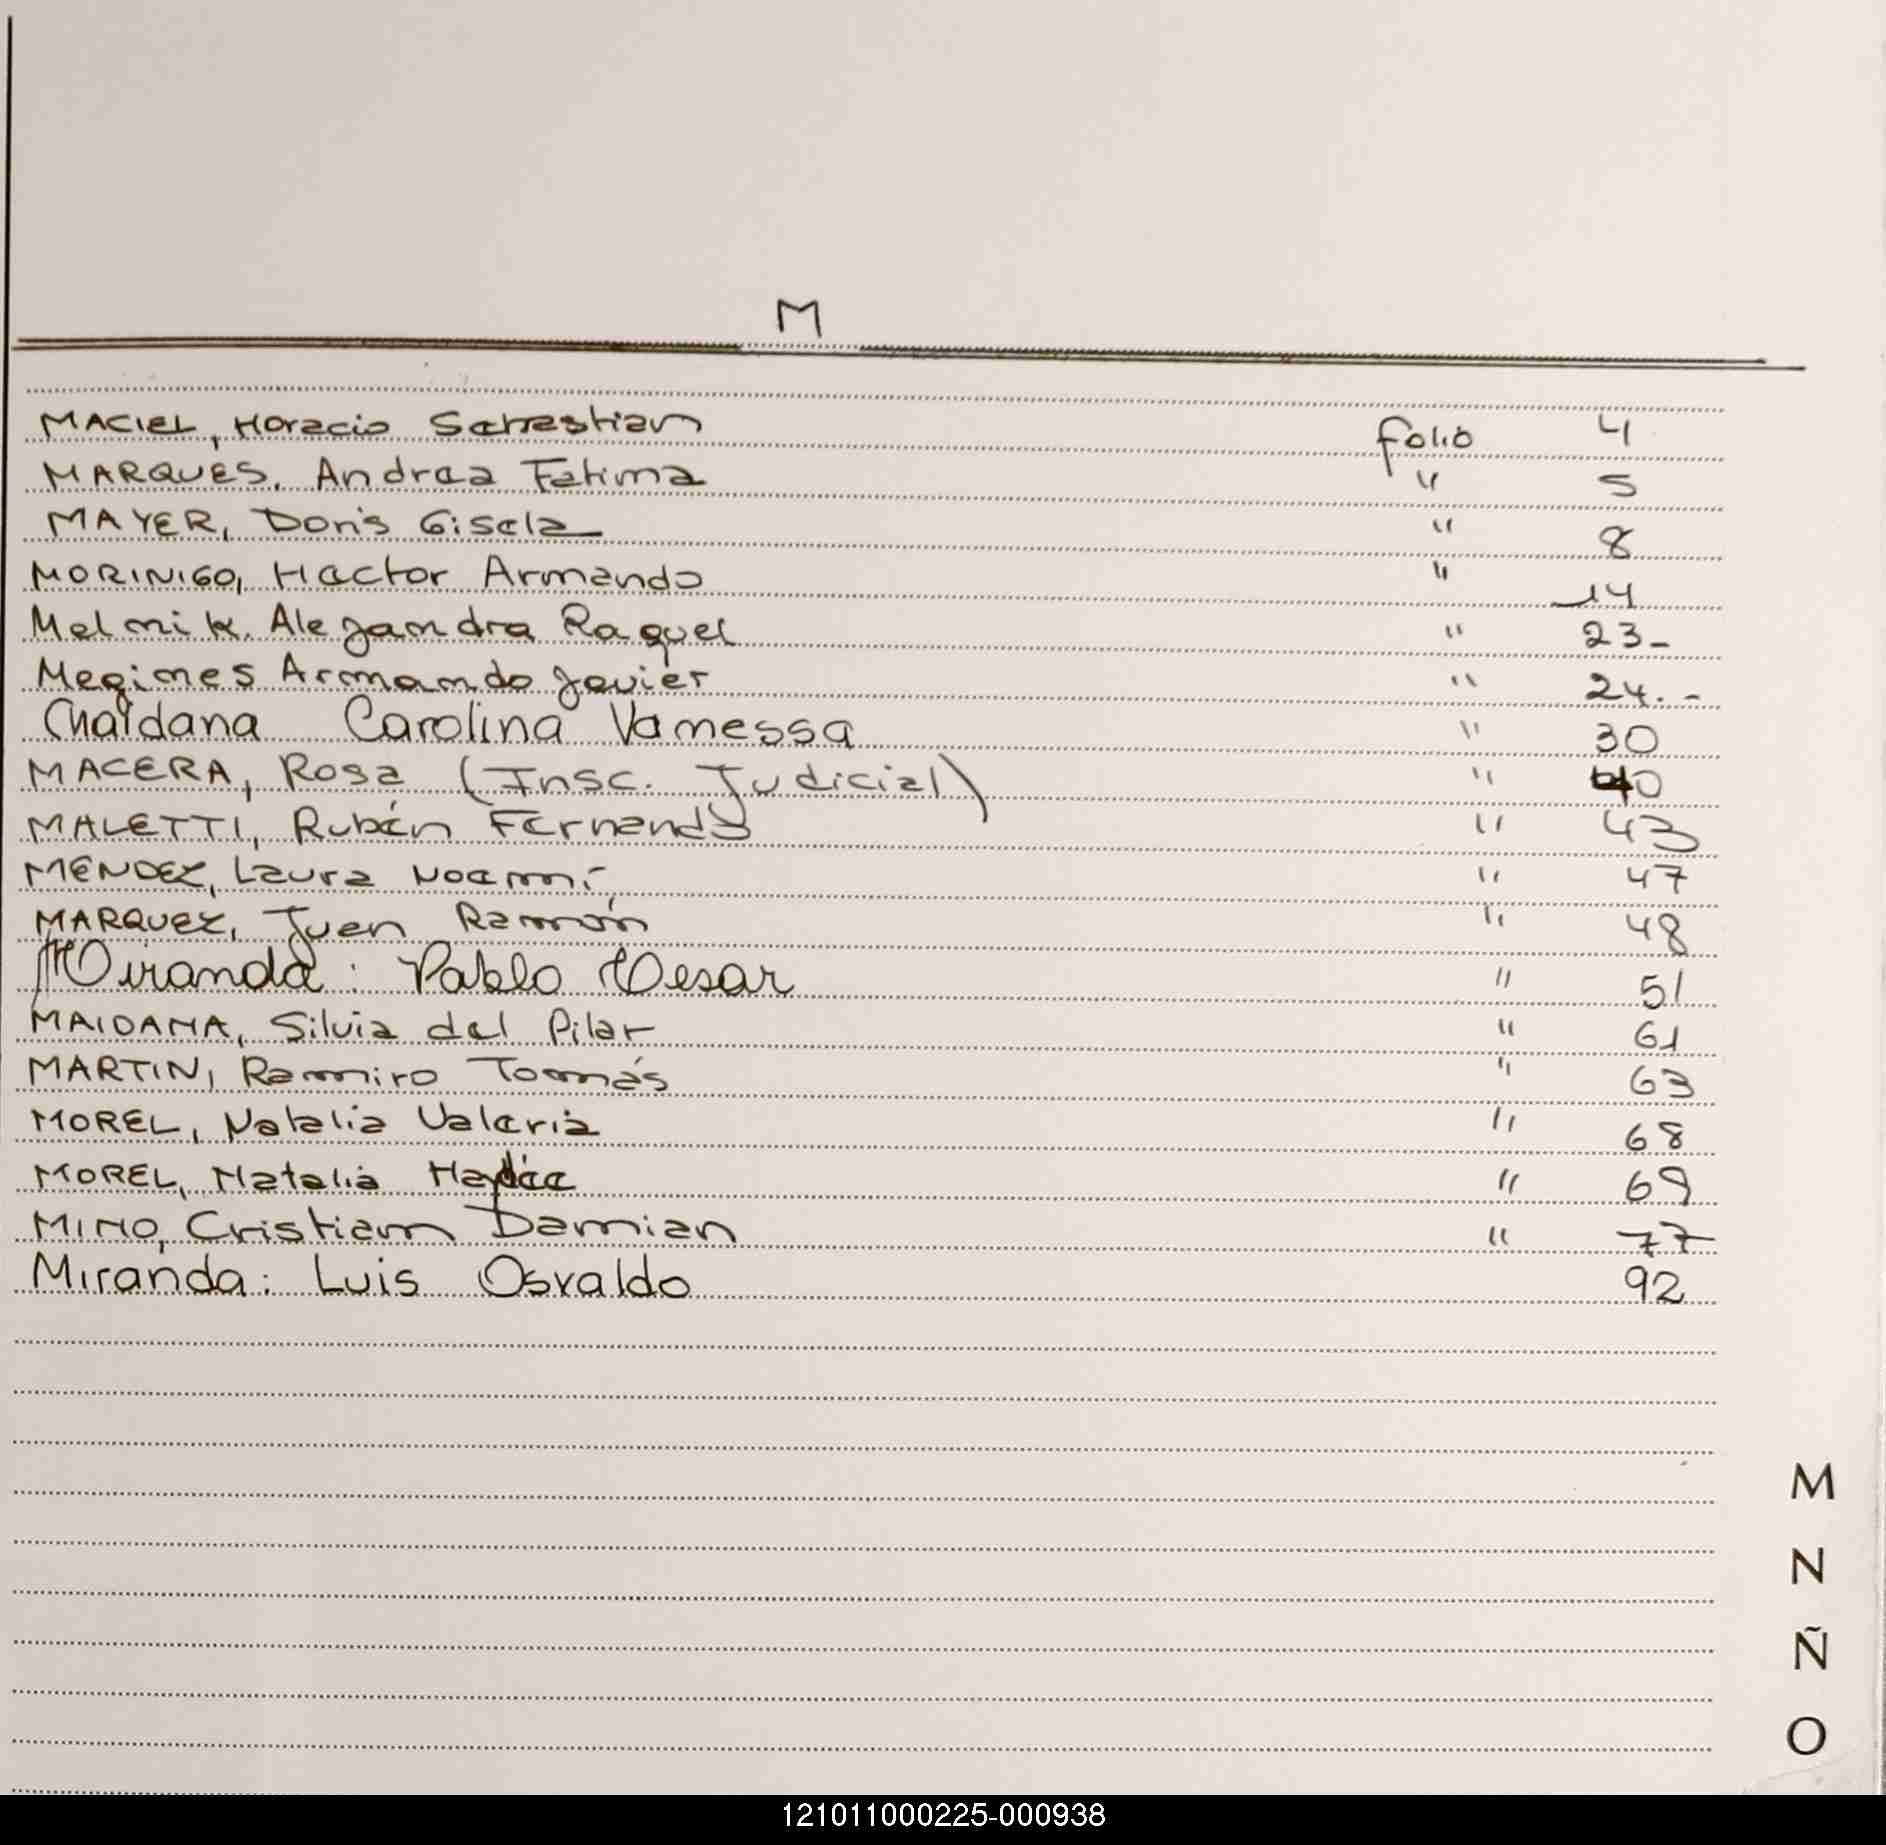 M
MACIEL, Horacio Sebastian folio 4
MARQUES, Andrea Fatima " 5
MAYER, Doris Gisela " 8
MORINIGO, Hector Armando " 14
Melnik. Alejandra Raquel " 23-
Megimes Armando Javier " 24.-
Maidana Carolina Vanessa " 30
MACERA, Rosa (Insc. Judicial) " 40
MALETTI, Rubén Fernando " 43
MENDEZ, Laura Noemí " 47
MARQUEZ, Juan Ramón " 48
Miranda: Pablo Cesar " 51
MAIDANA, Silvia del Pilar " 61
MARTIN, Ramiro Tomás " 63
MOREL, Natalia Valeria " 68
MOREL, Natalia Haydée " 69
MIÑO, Cristian Damian " 77
Miranda: Luis Osvaldo 92
M
N
Ñ
O
121011000225-000938